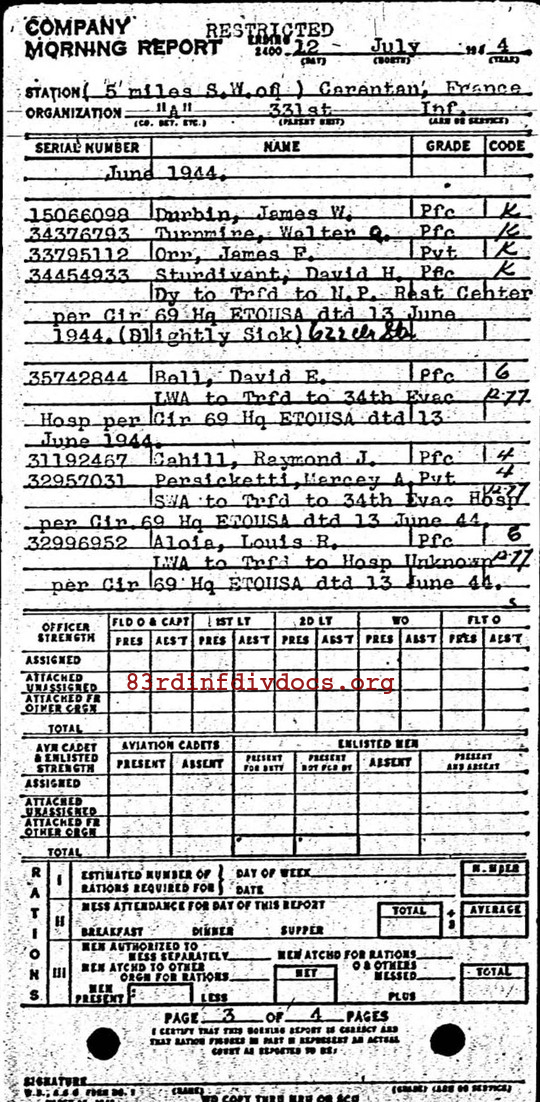 COMPANY RESTRICTED
MORNING REPORT ENDING 2400 12 July 194 4
(DAY) (MONTH) (YEAR)
STATION ( 5 miles S.W. of ) Carentan, France
ORGANIZATION "A" 331st Inf.
(CO. DET. ETC.) (PARENT UNIT) (ARM OR SERVICE)
SERIAL NUMBER NAME GRADE CODE
June 1944.
15066098 Durbin, James W. Pfc K
34376793 Turnmire, Walter G. Pfc K
33795112 Orr, James F. Pvt K
34454933 Sturdivant, David H. Pfc K
Dy to Trfd to N.P. Rest Center
per Cir 69 Hq ETOUSA dtd 13 June
1944. (Slightly Sick)
35742844 Bell, David E. Pfc 6
LWA to Trfd to 34th Evac
Hosp per Cir 69 Hq ETOUSA dtd 13
June 1944.
31192467 Cahill, Raymond J. Pfc 4
32957031 Persicketti, Mercey A. Pvt 4
SWA to Trfd to 34th Evac Hosp
per Cir 69 Hq ETOUSA dtd 13 June 44.
32996952 Aloia, Louis R. Pfc 6
LWA to Trfd to Hosp Unknown
per Cir 69 Hq ETOUSA dtd 13 June 44.
OFFICER STRENGTH FLD O & CAPT 1ST LT 2D LT WO FLT O
PRES ABS'T PRES ABS'T PRES ABS'T PRES ABS'T PRES ABS'T
ASSIGNED
ATTACHED UNASSIGNED
83rdinfdivdocs.org
ATTACHED FR OTHER ORGN
TOTAL
AVN CADET & ENLISTED STRENGTH AVIATION CADETS ENLISTED MEN
PRESENT ABSENT PRESENT FOR DUTY PRESENT NOT FOR DY ABSENT PRESENT AND ABSENT
ASSIGNED
ATTACHED UNASSIGNED
ATTACHED FR OTHER ORGN
TOTAL
RATIONS
I ESTIMATED NUMBER OF RATIONS REQUIRED FOR } DAY OF WEEK NUMBER
DATE
II MESS ATTENDANCE FOR DAY OF THIS REPORT TOTAL ÷ 3 AVERAGE
BREAKFAST DINNER SUPPER
III MEN AUTHORIZED TO MESS SEPARATELY MEN ATCHD FOR RATIONS
MEN ATCHD TO OTHER ORGN FOR RATIONS NET O & OTHERS MESSED TOTAL
MEN PRESENT LESS PLUS
PAGE 3 OF 4 PAGES
I CERTIFY THAT THIS MORNING REPORT IS CORRECT AND
THAT RATION FIGURES IN PART III REPRESENT AN ACTUAL
COUNT AS REPORTED TO ME:
SIGNATURE
W.D., A.G.O. FORM NO. 1 (NAME) (GRADE) (ARM OR SERVICE)
WD COPY THRU MRU OR SCU